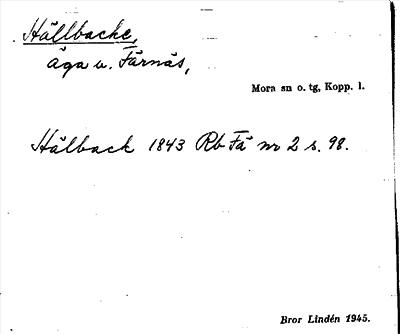 Hällbacke,
äga u. Färnäs,
Mora sn o. tg, Kopp. l.
Hälback 1843 Rb Fä nr 2 s. 98.
Bror Lindén 1945.